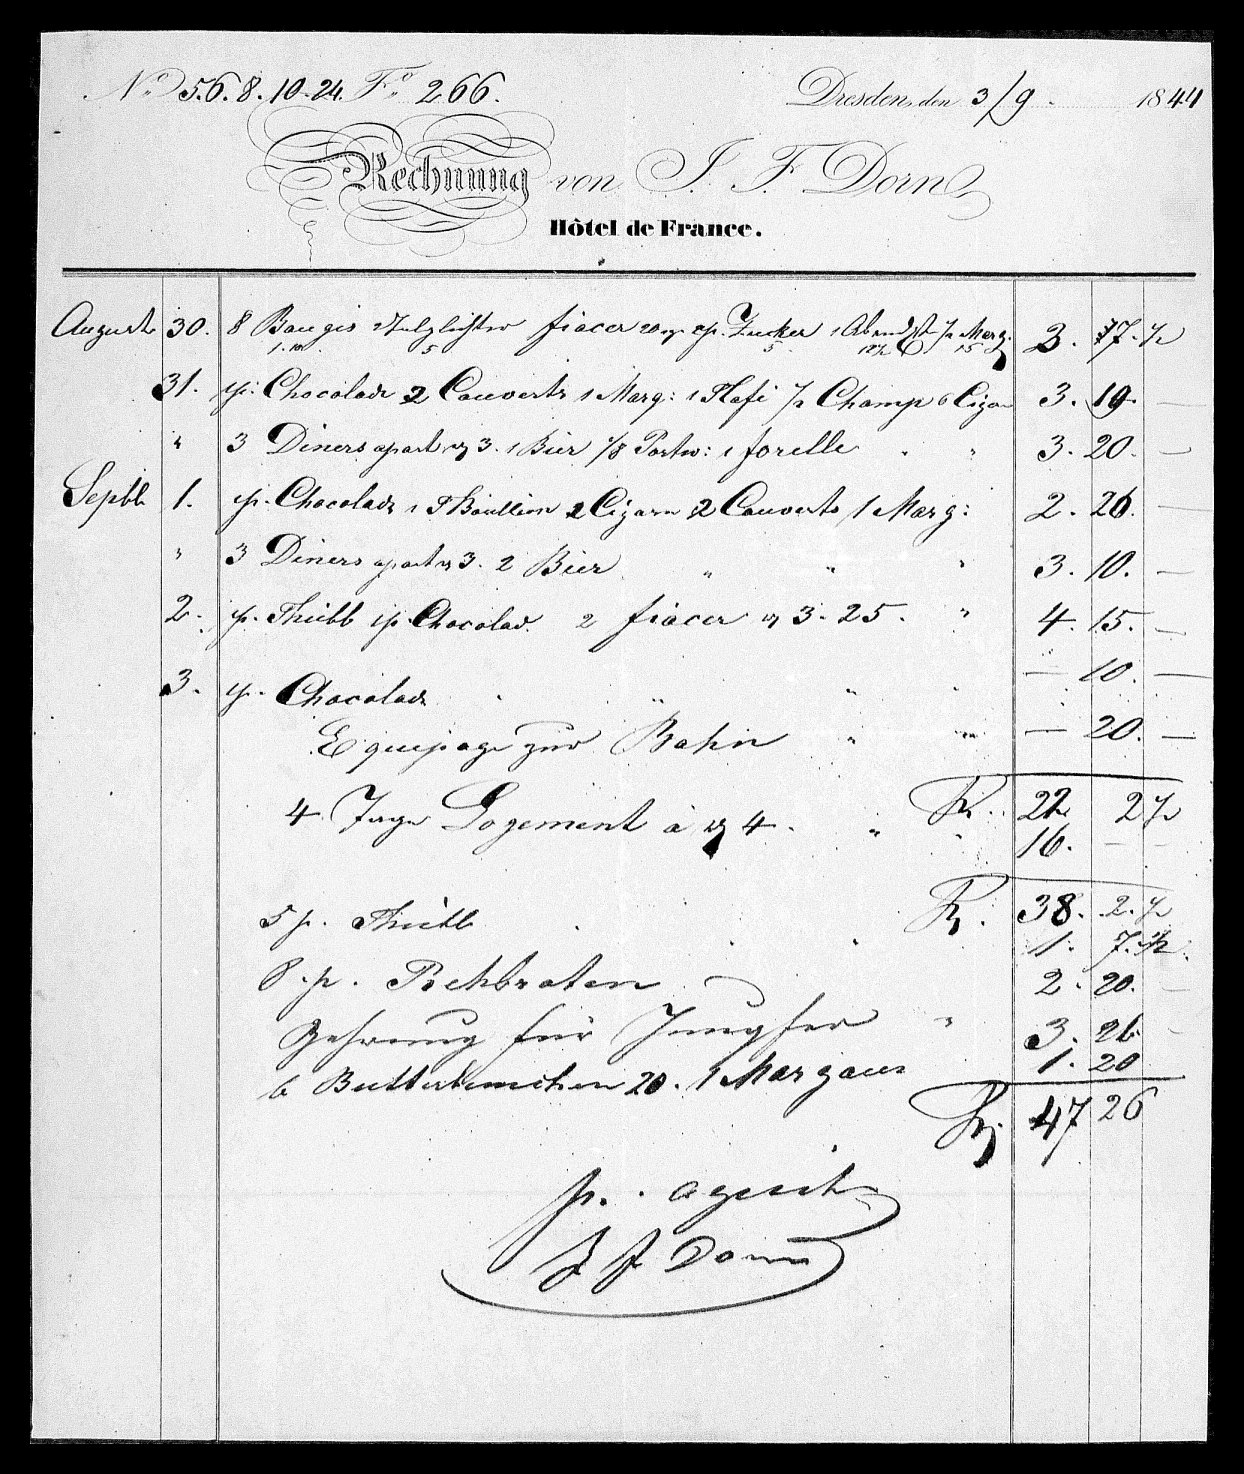 No 5.6.8.10.24. Fo 266. Dresden, den 3/9. 1844
Rechnung von J. F. Dorn
Hôtel de France.
August 30. 8 Bougis fiacer 20 p. Zucker 1/2 Marg. 2. 17. 1/2
1.10. 5 5 15
31. p. Chocolade 2 Couverts 1 Marg: 1 Kafé 1/2 Champ 6 Cigar 3. 19. —
" 3 Diners apart 3. 1 Bier 1/8 Portw: 1 forelle " " 3. 20. —
Septb 1. p. Chocolade 1 Boullion 2 Cigarn 2 Couverts 1 Marg: 2. 26. —
" 3 Diners apart 3. 2 Bier " " " 3. 10. —
2. p. p. Chocolad. 2 fiacer 3. 25. " 4. 15. —
3. p. Chocolade " " — 10. —
Equipage zur Bahn " " — 20. —
22 2 1/2
4 Tage Logement à 4. " " 16. — —
38. 2. 1/2
5 p. 1. 7. 1/2
8. p. Rehbraten 2. 20. —
Zehrung für Jungfer " 3. 26. -
6 Butterbemchen 20. 1 Margaux 1. 20
47 26
J F Dorn